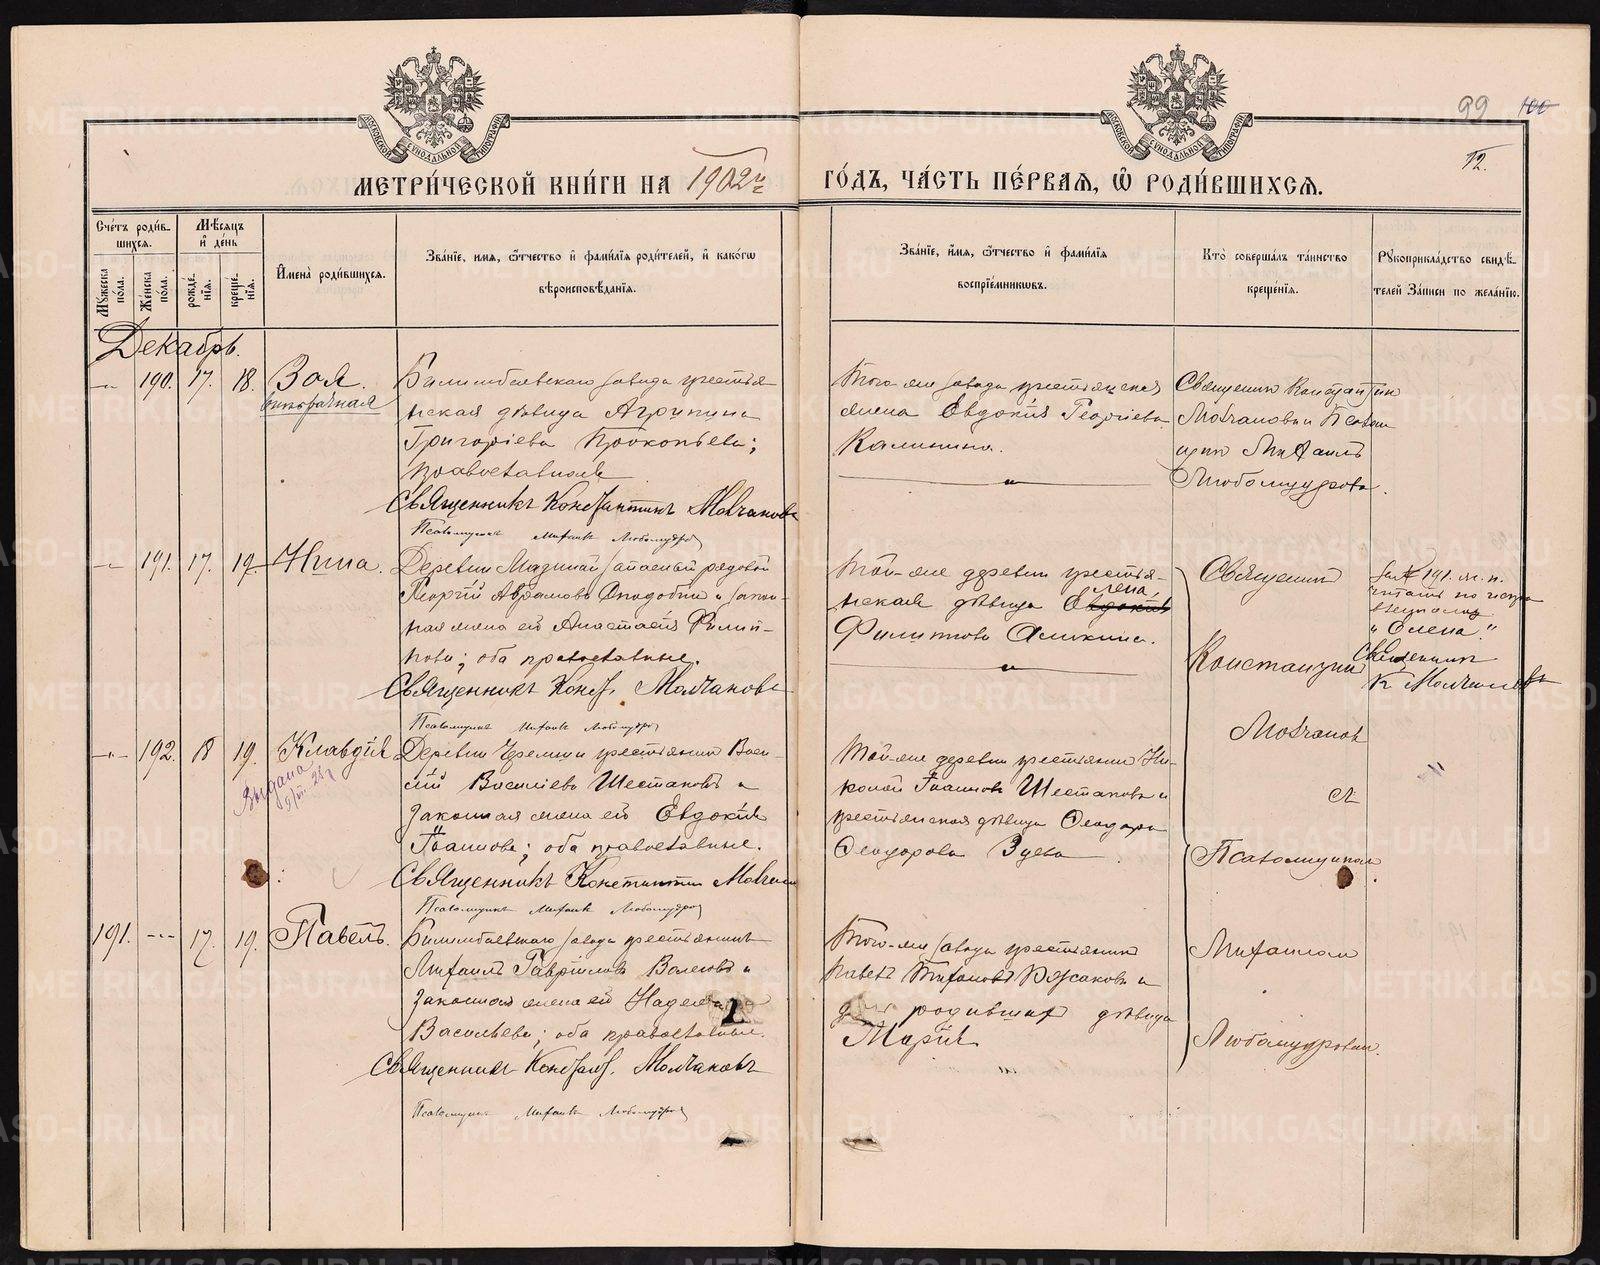 99 100
12.
МЕТРИ́ЧЕСКОЙ КНИ́ГИ НА 1902й ГО́ДЪ, ЧА́СТЬ ПЕ́РВАЯ, Ѽ РОДИ́ВШИХСЯ.
МОСКОВСКОЙ СУНОДАЛЬНОЙ ТИПОГРАФІИ
МОСКОВСКОЙ СУНОДАЛЬНОЙ ТИПОГРАФІИ
Сче́тъ роди́в-
шихся.
Мѣ́сяцъ
и҆ де́нь
Му́жеска по́ла.
Же́нска по́ла.
рожде́-
нїя.
креще́-
нїя.
И҆мена̀ роди́вшихся.
Зва́нїе, и҆мя, ѻ҆́тчество и҆ фами́лїя роди́телей, и҆ како́гѡ
вѣроисповѣ́данїя.
Зва́нїе, и҆мя, ѻ҆́тчество и҆ фами́лїя
воспрїе́мникѡвъ.
Кто̀ соверша́лъ та́инство
креще́нїя.
Рꙋкоприкла́дство свидѣ́-
телей За́писи по жела́нїю.
Декабрь.
190. 17. 18. Зоя.
внѣбрачная
Билимбаевскаго завода крестья-
нская дѣвица Агрипина
Григоріева Прокопьева;
православная
Священникъ Константинъ Молчановъ
Псаломщикъ Михаилъ Любомудровъ
Того-же завода крестьянская
жена Евдокія Георгіева
Калинина.
Священник Константин
Молчановъ и Псалом
щик Михаилъ
Любомудровъ.
191. 17. 19. Нина.
Деревни запасный рядовой
Георгій Аврамовъ и закон-
ная жена его Анастасія Филип-
пова; оба православные.
Священникъ Конст. Молчановъ
Псаломщикъ Михаилъ Любомудровъ
Той-же деревни крестья-
лена
нская дѣвица Евдокія
Филиппова
Священник
Константин
Молчанов
съ
Псаломщиком
Михаилом
Любомудровым.
191. ж. п.
читать по
"Елена."
Священник
К Молчановъ
192. 18 19. Клавдія
Выдана
9/III 28 г
Деревни крестьянин Васи-
лій Василіевъ Шестаковъ и
законная жена его Евдокія
Іоаннова; оба православные.
Священникъ Константин Молчанов
Псаломщикъ Михаилъ Любомудровъ
Той-же деревни крестьянин Ни-
колай Іоанновъ Шестаковъ и
крестьянская дѣвица Ѳеодора
Ѳеодорова Зуева.
191. 17. 19. Павелъ.
Билимбаевскаго завода крестьянинъ
Михаилъ Гавріиловъ и
законная жена его Надежда
Васильева; оба православные.
Священникъ Конст. Молчановъ
Псаломщикъ Михаилъ Любомудровъ
Того-же завода крестьянин
Павелъ Русаковъ и
родившая дѣвица
Марія
METRIKI.GASO-URAL.RU